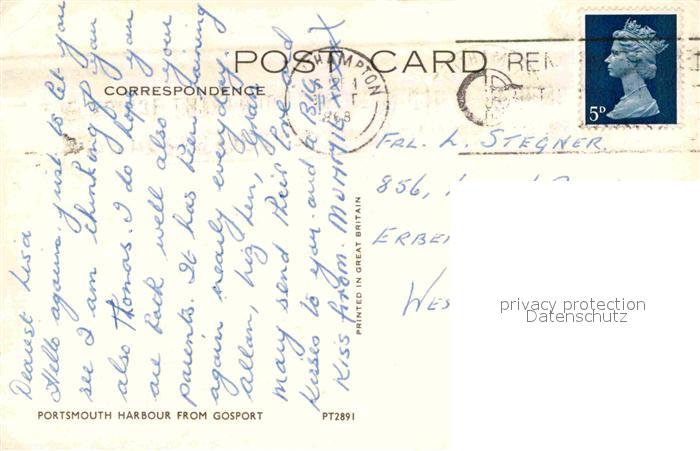 POST CARD
CORRESPONDENCE
Dearest Lisa
Hello again. just to let you
see I am thinking of you
also Thomas. I do hope you
are back well also your
parents. It has been raining
again nearly everyday.
allan, Liz, Len, Gran
mary send their love and
kisses to you. and a BIG
Kiss from. MUMMYE XXXXX
PRINTED IN GREAT BRITAIN
PORTSMOUTH HARBOUR FROM GOSPORT PT2891
HAMPTON
1968
REM
5D
FRL. L. STEGNER.
856,
ERBE
WES
privacy protection
Datenschutz